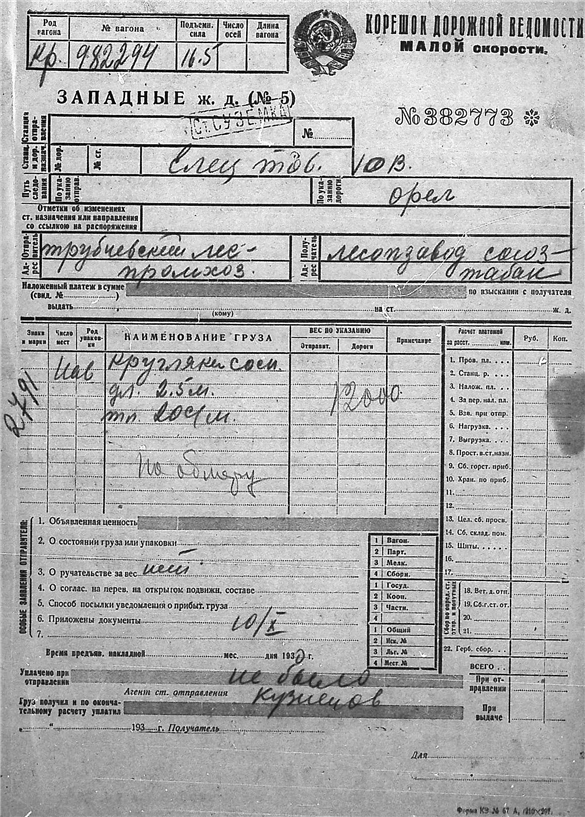 Род вагона № вагона Подъемн. сила Число осей Длина вагона
Кр. 982294 16.5
КОРЕШОК ДОРОЖНОЙ ВЕДОМОСТИ
МАЛОЙ скорости.
ЗАПАДНЫЕ ж. д. (№ 5)
Ст. СУЗЕМКА
№ 382773
Станция отправл. №
Станц. и дор. назнач. № дор. № ст. 10 в.
Путь следования По указанию отправ. По указ. дороги орел
Отметки об изменениях
ст. назначения или направления
со ссылкою на распоряжения
Отправитель Адрес трубчевский лес-
промхоз.
Получатель Адрес лесопзавод союз-
табак
Наложенный платеж в сумме
(свид. № ) по взысканию с получателя
выдать (кому) на ст. ж. д.
Знаки и марки Число мест Род упаковки НАИМЕНОВАНИЕ ГРУЗА ВЕС ПО УКАЗАНИЮ Отправит. Дороги Примечание
2791
нав кругляки сосн.
дл. 2.5 м.
12000
по обмеру
Расчет платежей за расст. Руб. Коп.
1. Пров. пл.
2. Станц. р.
3. Налож. пл.
4. За пер. нал. пл.
5. Взв. при отпр.
6. Нагрузка.
7. Выгрузка.
8. Прост. в ст. назн.
9. Сб. горст. приб.
10. Хран. по приб.
11.
12.
13. Цел. сб. просн.
14. Сб. склад. пом.
15. Щиты.
16.
17.
18. Вет. д. отп.
19. Сб. г. ст. от.
20.
21.
22. Герб. сбор.
ВСЕГО
При отправлении
При выдаче
ОСОБЫЕ ЗАЯВЛЕНИЯ ОТПРАВИТЕЛЯ:
1. Объявленная ценность
2. О состоянии груза или упаковки
3. О ручательстве за вес нет
4. О соглас. на перев. на открытом подвижн. составе
5. Способ посылки уведомления о прибыт. груза
6. Приложены документы 10/X
7.
1 Вагон.
2 Парт.
3 Мелк.
4 Сборн.
1 Госуд.
2 Кооп.
3 Части.
4
1 Общий
2 Иск. №
3 Льг. №
4 Мест. №
Время предъяв. накладной мес. дня 193 г.
Уплачено при отправлении не было
Агент ст. отправления Кузнецов
Груз получил и по окончательному расчету уплатил
" " 193 г. Получатель
Для